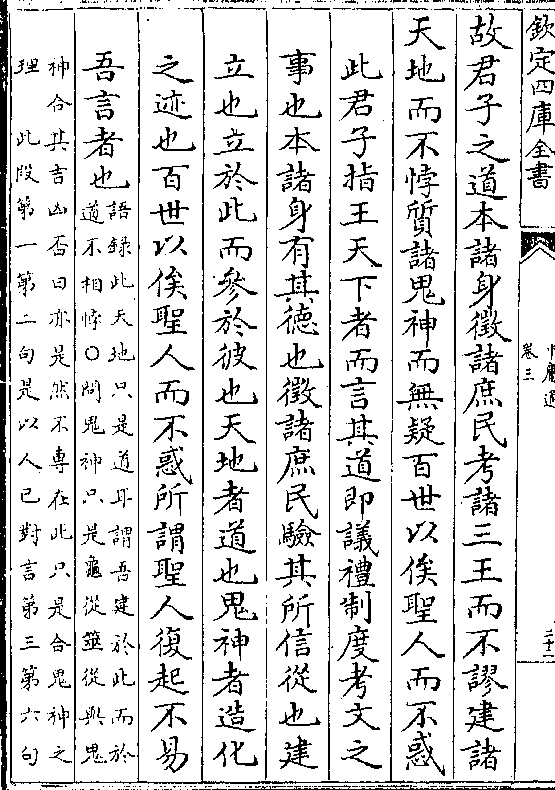 欽定四庫全書
卷三
三十一
故君子之道本諸身徵諸庶民考諸三王而不謬建諸
天地而不悖質諸鬼神而無疑百世以俟聖人而不惑
此君子指王天下者而言其道即議禮制度考文之
事也本諸身有其德也徵諸庶民驗其所信從也建
立也立於此而參於彼也天地者道也鬼神者造化
之迹也百世以俟聖人而不惑所謂聖人復起不易
吾言者也
語錄此天地只是道耳謂吾建於此而於
道不相悖○問鬼神只是龜從筮從與鬼
神合其吉凶否曰亦是然不專在此只是合鬼神之
理此段第一第二句是以人己對言第三第六句